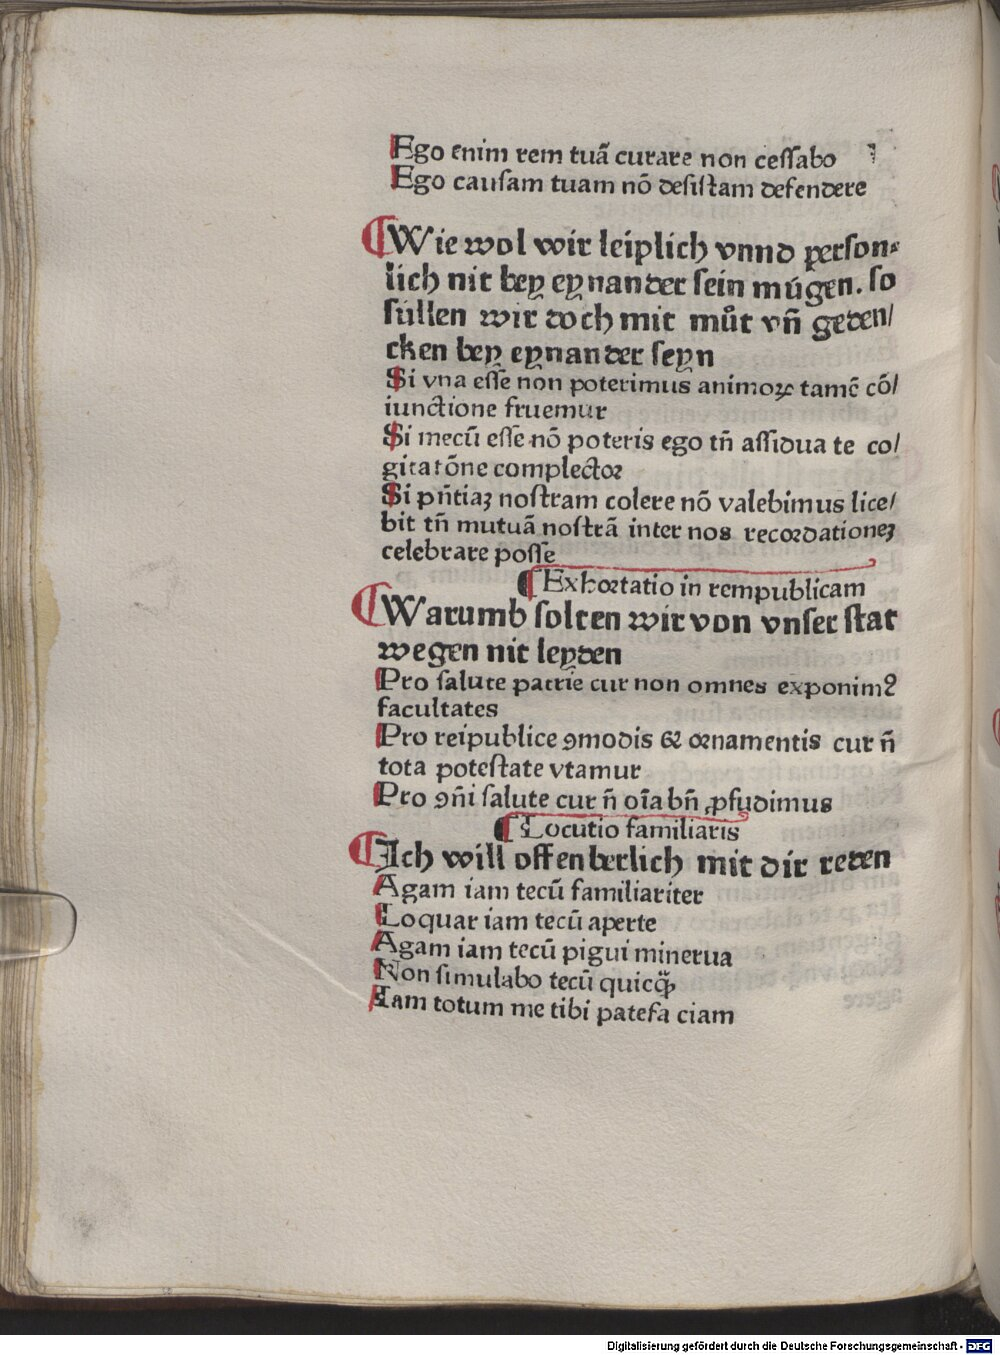 Ego enim rem tuã curare non cessabo
Ego causam tuam nõ desistam defendere
Wie wol wir leiplich vnnd person⸗
lich nit bey eynander sein mu̇gen. so
süllen wir doch mit můt vñ geden/
cken bey eynander seyn
Si vna esse non poterimus animoꝝ tamẽ cõ/
iunctione fruemur
Si mecũ esse nõ poteris ego tñ assidua te co/
gitatõne complector
Si pñtiaꝫ nostram colere nõ valebimus lice/
bit tñ mutuã nostrã inter nos recordationeꝫ
celebrare posse
¶ Exhortatio in rempublicam
Warumb solten wir von vnser stat
wegen nit leyden
Pro salute patrie cur non omnes exponimꝰ
facultates
Pro reipublice ꝯmodis & ornamentis cur ñ
tota potestate vtamur
Pro ꝯñi salute cur ñ oĩa bñ ꝓfudimus
¶ Locutio familiaris
Ich will offenberlich mit dir reden
Agam iam tecũ familiariter
Loquar iam tecũ aperte
Agam iam tecũ pigui minerua
Non simulabo tecũ quicꝙ̃
Iam totum me tibi patefa ciam
Digitalisierung gefördert durch die Deutsche Forschungsgemeinschaft - DFG